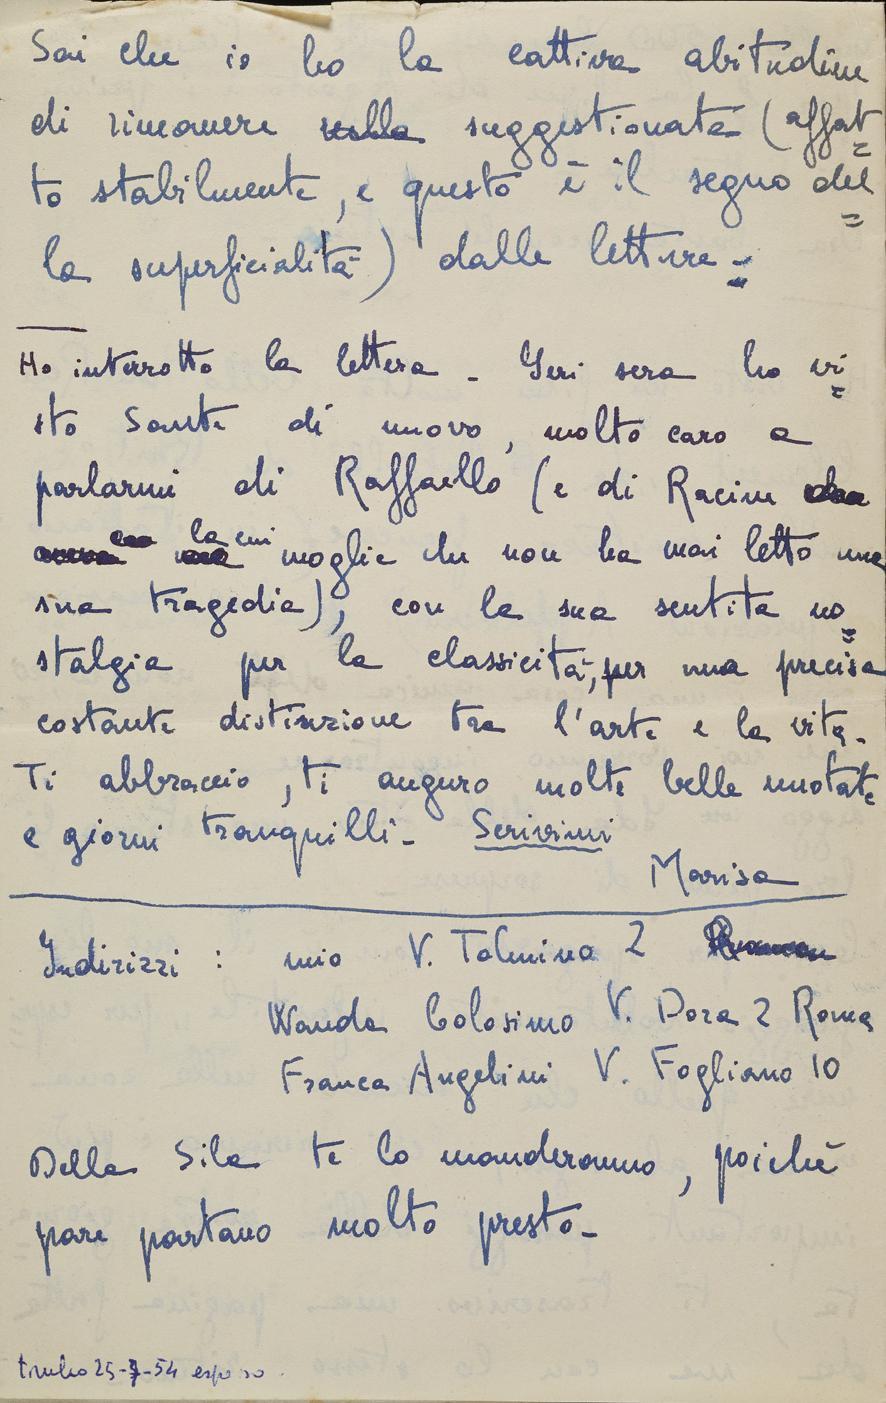 Sai che io ho la cattiva abitudine
di rimanere suggestionata (affat=
to stabilmente, e questo è il segno del=
la superficialità) dalle letture -
Ho interrotto la lettera - Ieri sera ho vi=
sto Sante di nuovo, molto caro a
parlarmi di Raffaello (e di Racine
la cui moglie che non ha mai letto una
sua tragedia), con la sua sentita no=
stalgia per la classicità, per una precisa
costante distinzione tra l'arte e la vita -
Ti abbraccio, ti auguro molte belle nuotate
e giorni tranquilli - Scrivimi
Marisa
Indirizzi : mio V. Tolmino 2
Wanda Colosimo V. Dora 2 Roma
Franca Angelini V. Fogliano 10
Della Sila te lo manderanno, poichè
pare partano molto presto -
25-7-54